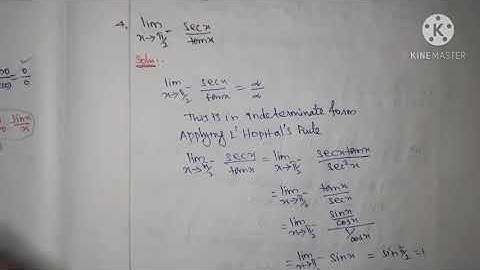 4. lim x→π/2⁻ secx/tanx
KINEMASTER
Soln:-
lim x→π/2⁻ secx/tanx = ∝/∝
This is in indeterminate form
Applying L' Hopital's Rule
lim x→π/2⁻ secx/tanx = lim x→π/2⁻ secx tanx/sec²x
= lim x→π/2⁻ tanx/secx
= lim x→π/2⁻ sinx/cosx / 1/cosx
= lim x→π/2⁻ sinx = sin π/2 = 1
0/0
sinx/x